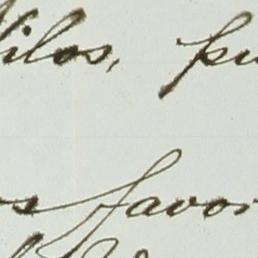 ilos, pu
s favor